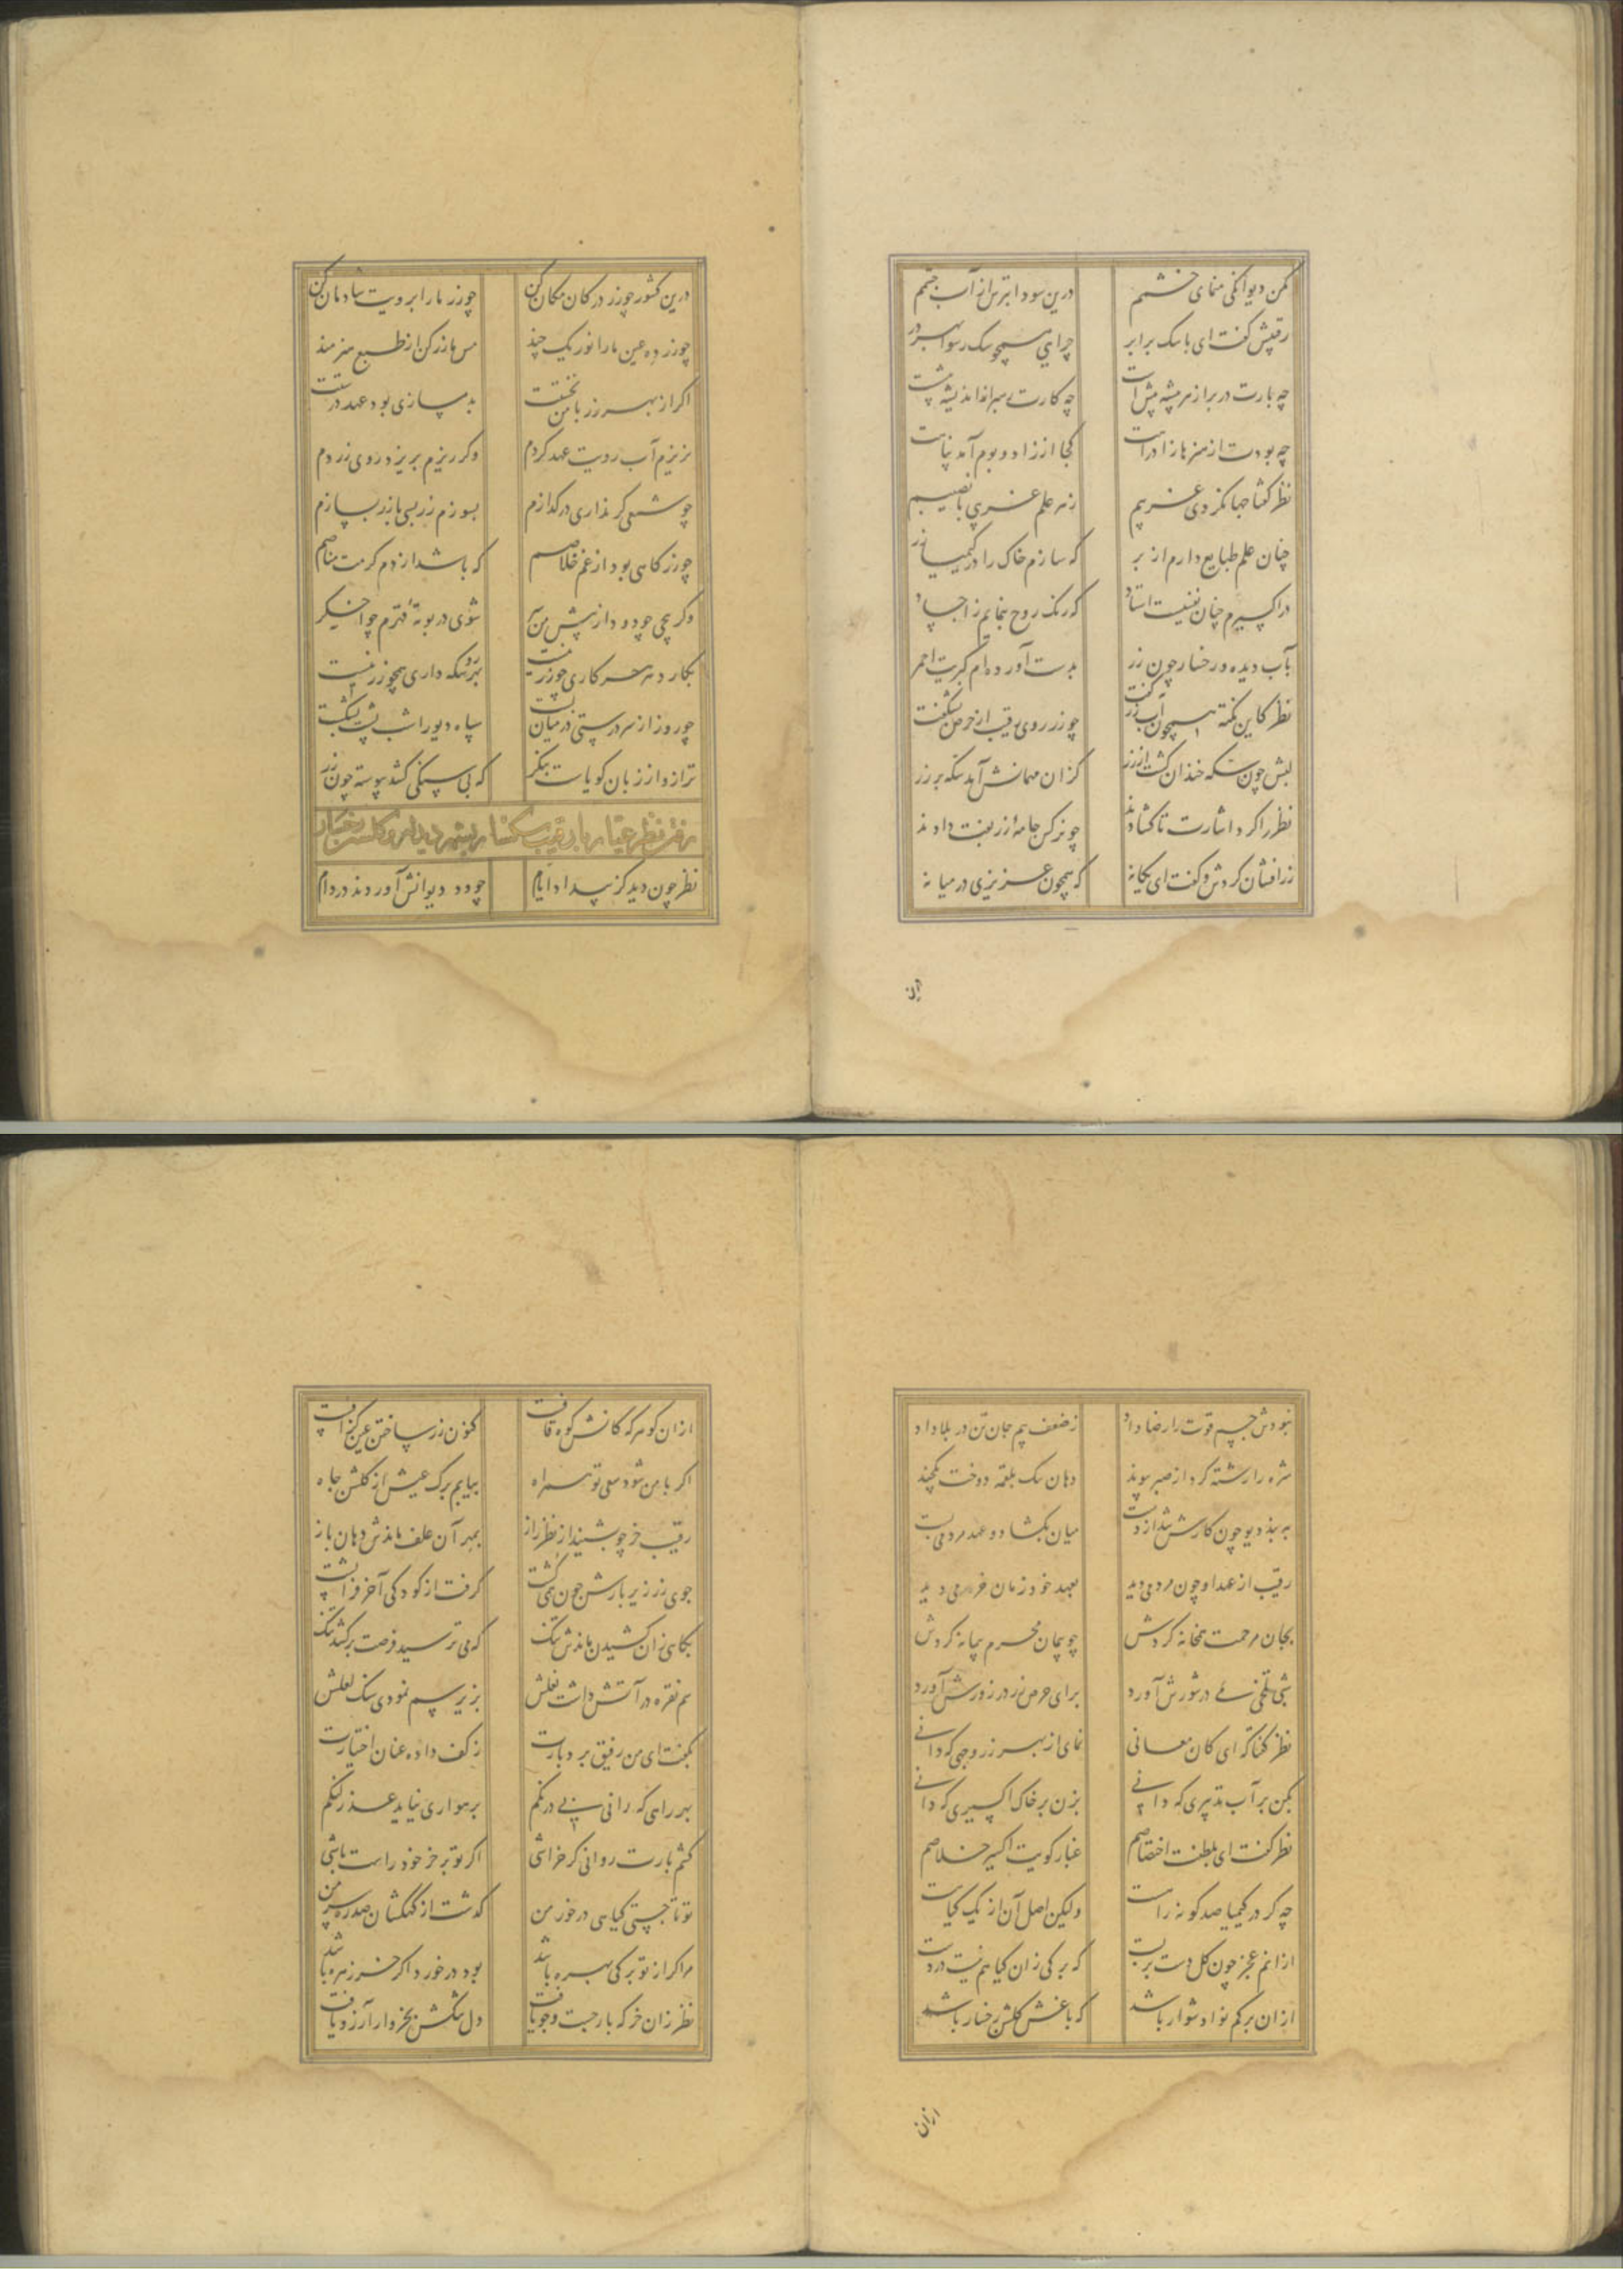 مکن دیوانگی منمای خشمم درین سودا بترس از آب چشمم
رقیبش گفت ای با سک برابر چرایی همچو سک رسوا بهر در
چه بارت در برازهر پیشه پیش است چه کارت
چه بودت از هنرها زاد راهت کجا از زاد و بوم آمد پناهت
نظر گفتا جهانگردی غریبم زهر علم غریبی با نصیبم
چنان علم طبایع دارم از بر که سازم خاک را در کیمیا زر
در اکسیرم چنان نفسیست استاد که رنک روح بنمایم ز اجساد
بآب دیده و رخسار چون زر بدست آورده‌ام کبریت احمر
نظر کاین نکته همچون آب زر گفت چو زر روی رقیب از خرمی بشکفت
لبش چون سکه خندان گشت از زر کزان مهمانش آید سکه بر زر
نظر را کرد اشارت تا کشادند چو نرکس جامه از زربفت دادند
زرافشان کردش و گفت ای یکانه که همچون عزیزی در میانه
درین
درین کشور چو زر در کان مکان کن چو زر ما را برویت شادمان کن
چو زر ده عین ما را نور یک چند مس ما زر کن از طبع هنرمند
اگر از بهر زر با من نخستت بدمسازی بود عهد درستت
نریزم آب رویت عهد کردم وکر ریزم بریزد روی زردم
چو شمعی گر گذاری در گدازم بسوزم زر بسی با زر بسازم
چو زر کاهی بود از غم خلاصم که باشد از دم کرمت مناصم
وکر پیچی چو دود از پیش من سر شوی در بوته قهرم چو اخکر
بکار در هر کاری چو زر نیست بزر سکه داری همچو زر نیست
چو روز از زر درستی در میان بست سپاه دیو را شب پشت بشکست
ترازو از زبان گویات بنگر که بی سنگی کشد پیوسته چون زر
رفتن نظر عیار با رقیب سکسار بشهر دیدار و گلشن رخسار
نظر چون دید کز بیداد ایام چو دد دیوانش آوردند در دام
نبودش جسم قوت را رضا داد ز ضعف بیم جان تن در بلا داد
مژه را رشته کرد از صبر پیوند دهان سک بلقمه دوخت یکچند
به بند دیو چون کارش شد از دست میان بکشاد و عهد مردمی بست
رقیب از عهد او چون مردمی دید بعهد خود زمان خرمی دید
بجان مرحمت همخانه کردش چو پیمان محرم پیمانه کردش
شبی تلخی می در شورش آورد برای حرص زر در زورش آورد
نظر گفتا که ای کان معانی نمای از بهر زر وجهی که دانی
بکن بر آب تدبیری که دانی بزن بر خاک اکسیری که دانی
نظر گفت ای بلطفت اختصاصم غبار کویت اکسیر خلاصم
چه گر در کیمیا صد گونه راست ولیکن اصل آن از یک کیاست
از انم عجز چون کل دست بربست که برگی زان گیاهم نیست در دست
از ان برگم نوا دشوار باشد که باغش گلشن رخسار باشد
ازان
ازان گوهر که کانش کوه قافت کنون زر ساختن عین گزافت
اگر با من شود سعی تو همراه بیابم برک عیش از گلشن جاه
رقیب خر چو بشنید از نظر راز بمهر آن علف ماندش دهان باز
جوی زر زیر بارش چون همی گشت گرفت از کودکی آخر فرا پشت
بگاهی زان کشیدن ماندش تنک که می ترسید فرصت برکشد تنک
سم نقره در آتش داشت نعلش بزیر سم نمودی سنک لعلش
بگفت ای من رفیق بردبارت ز کف داده عنان اختیارت
بهر راهی که رانی نی درنگم برهواری نیاید عذر لنگم
کشم بارت روانی گر خراشی اگر تو بر خر خود راست باشی
تو تا جستی گیاهی در خور من گذشت از کهکشان صدره سر من
مرا گر از تو برگی بهره باشد بود در خورد اگر خر زهره باشد
نظر زان خر که بار جست و جو یافت دل تنگش بخروار آرزو یافت